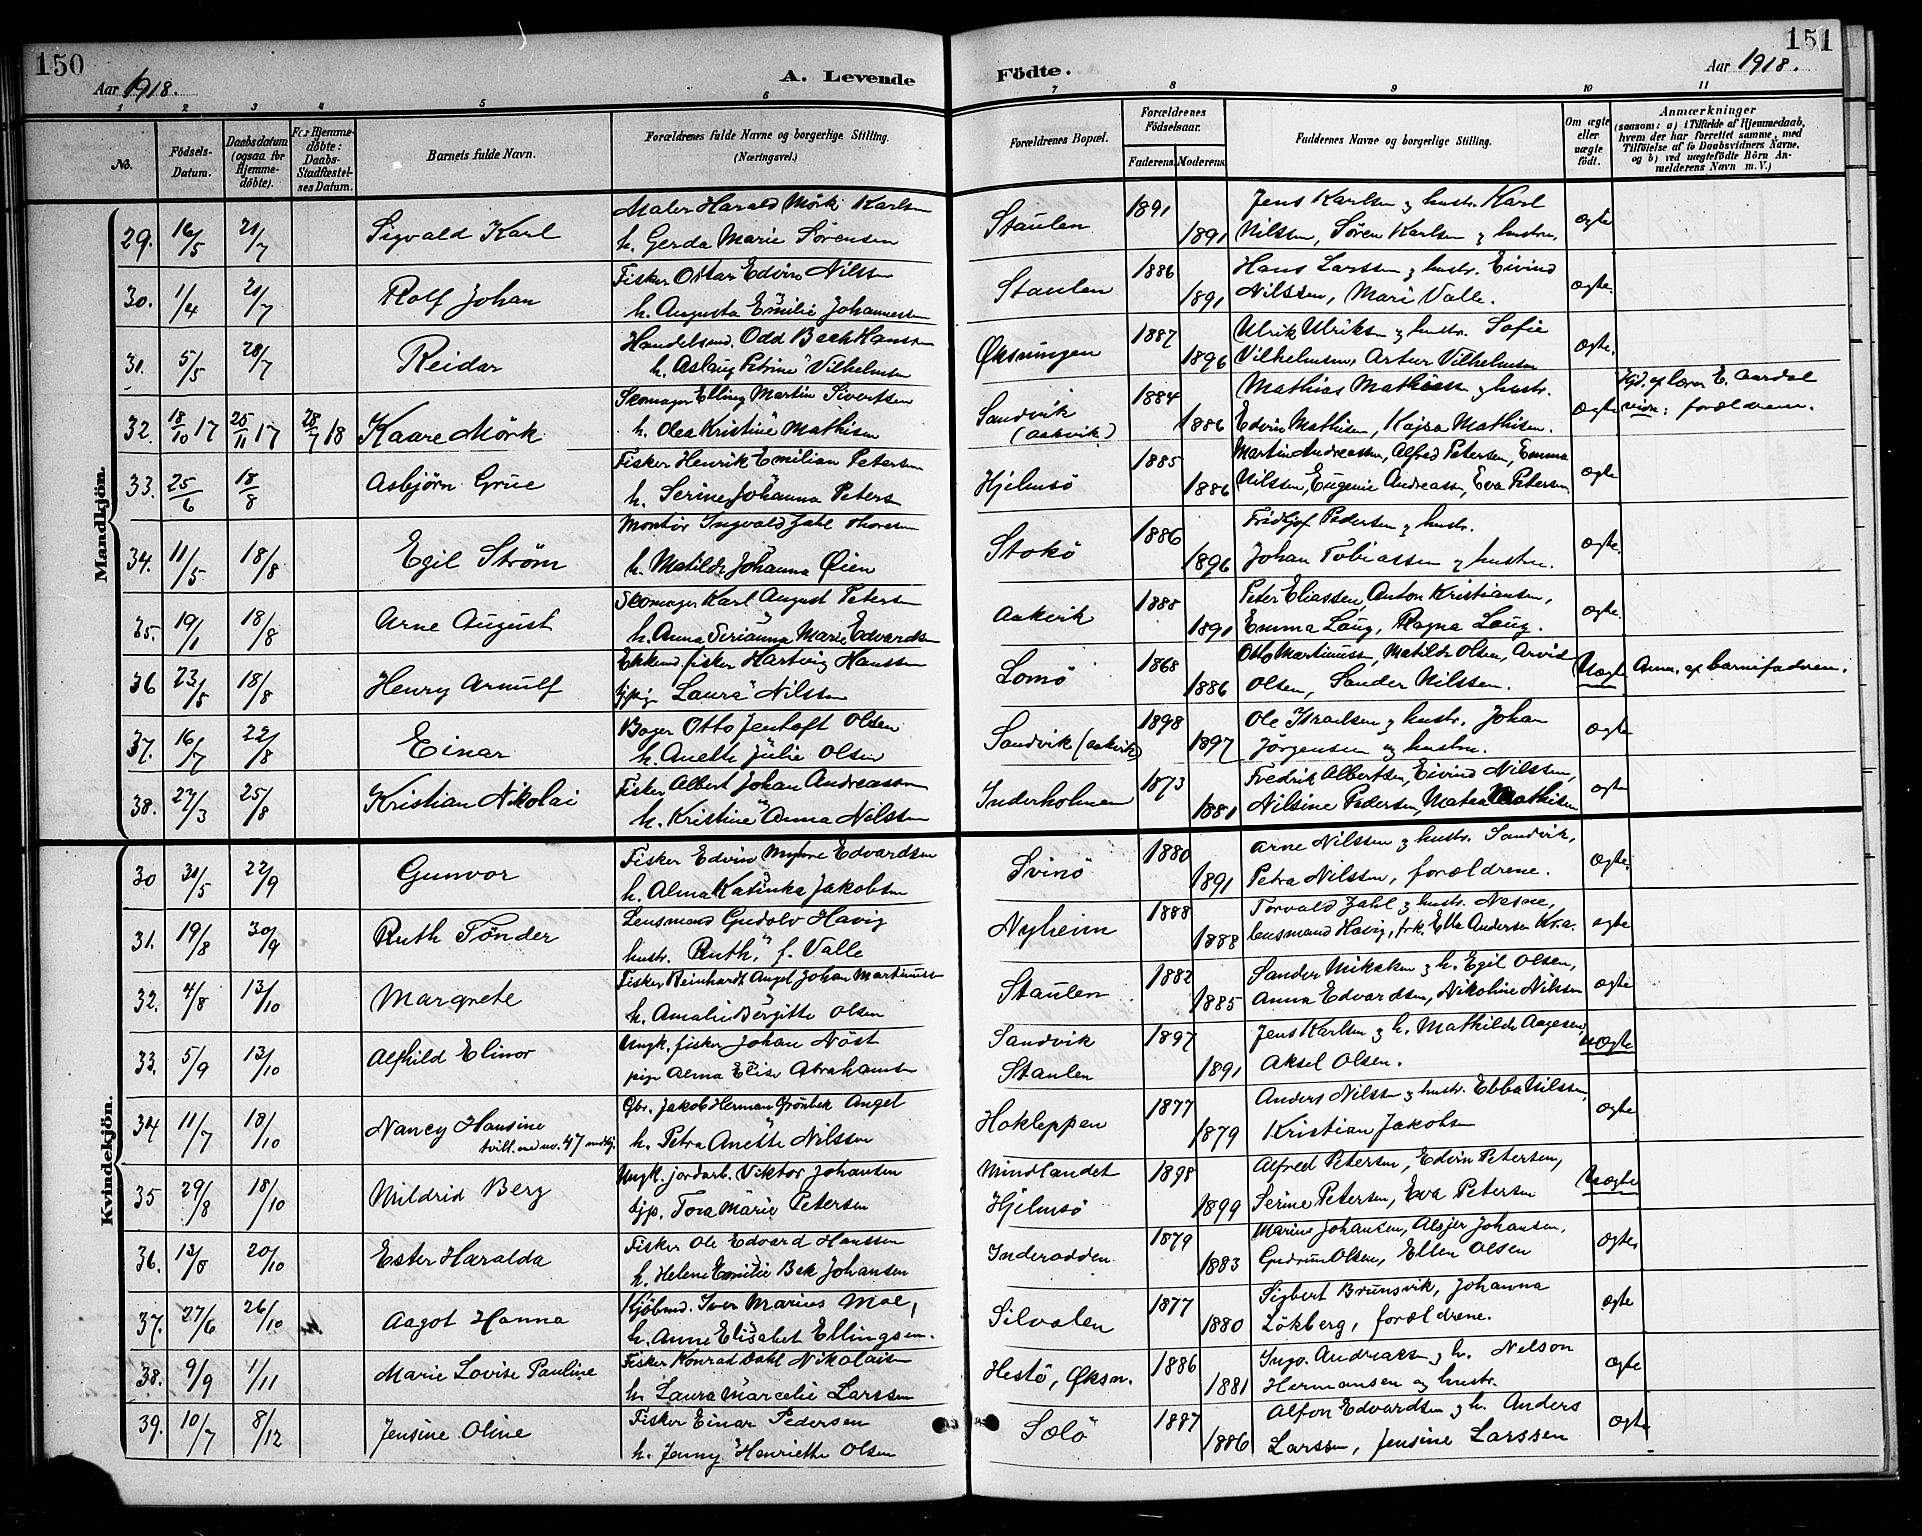 150
151
Aar 1918.
A. Levende Födte.
Aar 1918.
1 2 3 4 5 6 7 8 9 10 11
No.
Födsels-Datum.
Daabsdatum (ogsaa for Hjemmedöbte).
For Hjemmedöbte: Daabs-Stadfæstelses Datum.
Barnets fulde Navn.
Forældrenes fulde Navne og borgerlige Stilling. (Næringsvei.)
Forældrenes Bopæl.
Forældrenes Födselsaar.
Faderens. Moderens.
Faddernes Navne og borgerlige Stilling.
Om ægte eller uægte födt.
Anmærkninger (saasom: a) i Tilfælde af Hjemmedaab, hvem der har forrettet samme, med Tilföielse af to Daabsvidners Navne, og b) ved uægtefödte Börn Anmelderens Navn m. V.)
Mandkjön.
29. 16/5 21/7 Sigvald Karl
Maler Harald Mörk Karlsen
h. Gerda Marie Sörensen
Staulen 1891 1891
Jens Karlsen og hustr. Karl
Nilssen, Sören Karlsen og hustru.
ægte
30. 1/4 21/7 Rolf Johan
Fisker Ottar Edvin Nilssen
h. Augusta Emilie Johannessen
Staulen 1886 1891
Hans Larssen og hustr. Eivind
Nilssen, Mari Valle.
ægte.
31. 5/5 28/7 Reidar
Handelsmd. Odd Bech Hanssen
h. Aslaug Petrine Vilhelmsen
Øksningen 1887 1896
Ulrik Ulriksen og hustr. Sofie
Vilhelmsen, Artur Vilhelmsen
ægte.
32. 18/10 17 25/11 17 28/7 18 Kaare Mörk
Skomager Elling Martin Sivertsen
h. Olea Kristine Mathisen
Sandvik (Aakvik) 1884 1886
Mathias Mathissen og hustr.
Edvin Mathisen, Kajsa Mathisen.
ægte
Hjd. af lærer E. Aardal
vidn: forældrene.
33. 25/6 18/8 Asbjørn Grue
Fisker Henrik Emilian Petersen
h. Serine Johanna Peters
Hjelmsö 1885 1886
Martin Andreassen, Alfred Petersen, Emma
Nilssen, Eugenie Andreassen, Eva Petersen.
ægte
34. 11/5 18/8 Egil Strøm
Montör Ingvald Zahl Thoresen
h. Matilde Johanna Øien
Stokö 1886 1896
Fridtjof Pedersen og hustr.
Johan Tobiassen og hustru.
ægte.
35. 19/1 18/8 Arne August
Skomager Karl August Petersen
h. Anna Serianna Marie Edvardsen
Aakvik 1888 1891
Peter Eliassen, Anton Kristiansen,
Emma Laug, Ragna Laug.
ægte.
36 23/5 18/8 Henry Arnulf
Enkemd. fisker Hartvig Hanssen
tjpige Laura Nilssen
Lomö 1868 1886
Otto Martinussen, Matilde Olsen, Arvid
Olsen, Sander Nilssen.
Uægte
Anm. af barnefaderen.
37. 16/7 22/8 Einar
Bager Otto Jentoft Olsen
h. Anette Julie Olsen
Sandvik (Aakvik) 1898 1897
Ole Israelsen og hustr. Johan
Jörgensen og hustru.
ægte
38. 27/3 25/8 Kristian Nikolai
Fisker Albert Johan Andreassen
h. Kristine Anna Nilssen
Inderholmen 1873 1881
Fredrik Albertsen, Eivind Nilssen,
Nilsine Pedersen, Matea Mathisen
ægte
Kvindekjön.
30 31/5 22/9 Gunvor
Fisker Edvin Myhre Edvardsen
h. Alma Katinka Jakobsen
Svinö 1880 1891
Arne Nilssen og hustr. Sandvik,
Petra Nilssen, forældrene.
ægte.
31. 19/8 30/9 Ruth Tönder
Lensmand Gudolv Havig
hustr. Ruth, f. Valle
Nyheim 1888 1888
Torvald Zahl og hustr. Nesne,
lensmand Havig, frk. Ella Andersen Kr.a.
ægte
32. 4/8 13/10 Margrete
Fisker Reinhardt Angel Johan Martinussen
h. Amalie Bergitte Olsen
Staulen 1882 1885
Sander Mikalsen og h. Egil Olsen,
Anna Edvardsen, Nikoline Nilssen
ægte
33. 5/9 13/10 Alfhild Elinor
Ungk. fisker Johan Nöst
pige Alma Elise Abrahamsen
Sandvik
Staulen 1897 1891
Jens Karlsen og h. Mathilde Aagesen,
Aksel Olsen.
uægte
34 11/7 18/10 Nancy Hansine
tvill. med no. 47 mandkj.
Gbr. Jakob Herman Grönbek Angel
h. Petra Anette Nilssen
Hakleppen 1877 1879
Anders Nilssen og hustr. Ebba Nilssen,
Kristian Jakobsen
ægte
35 29/8 18/10 Mildrid Berg
Ungk. jordarb. Viktor Johansen
tjp. Tora Marie Petersen
Mindlandet
Hjelmsö 1898 1899
Alfred Petersen, Edvin Petersen,
Serine Petersen, Eva Petersen
Uægte
36. 13/8 20/10 Ester Haralda
Fisker Ole Edvard Hanssen
h. Helene Emilie Bek Johansen
Inderodden 1879 1883
Marine Johansen, Algjer Johansen,
Gudrun Olsen, Ellen Olsen
ægte
37. 27/6 26/10 Aagot Hanna
Kjöbmd. Iver Marius Moe,
h. Anne Elisabet Ellingsen.
Silvalen 1877 1880
Sigbert Brunsvik, Johanna
Lökberg, forældrene.
ægte
38. 9/9 1/11 Marie Lovise Pauline
Fisker Konrad Dahl Nikolaisen
h. Laura Marcelie Larssen
Hestö, Øksn. 1886 1881
Ingv. Andreassen og h. Nelson
Hermansen og hustr.
ægte
39. 10/7 8/12 Jensine Oline
Fisker Einar Pedersen
h. Jenny Henriette Olsen
Sölö 1887 1886
Alfon Edvardsen og h. Anders
Larssen, Jensine Larssen
ægte